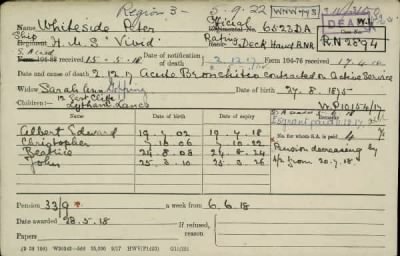 Region 3 - 5.9.22
Name Whiteside Peter Official Number 6523DA DEAD
Ship H.M.S. Vivid Rating Deck Hand R.N.R. R.N 2894
Form 104-88 received 15.5.18 Date of notification of death 2.12.17 Form 104-76 received 17.4.18
Date and cause of death 2.12.17 Acute Bronchitis contracted on Active Service
Widow Sarah Ann Date of birth 27.8.1875
12 East Cliffe
Children: Lytham Lancs
Date of birth Date of expiry
Albert Edward 19.7.02 19.7.18
Christopher 7.10.06 7.10.22
Beatrice 24.8.08 24.8.24
John 25.3.10 25.3.26
No. for whom S.A. is paid 4
Pension decreasing by
from 20.7.18
Pension 33/9 a week from 6.6.18
Date awarded 28.5.18
Paper If refused, reason